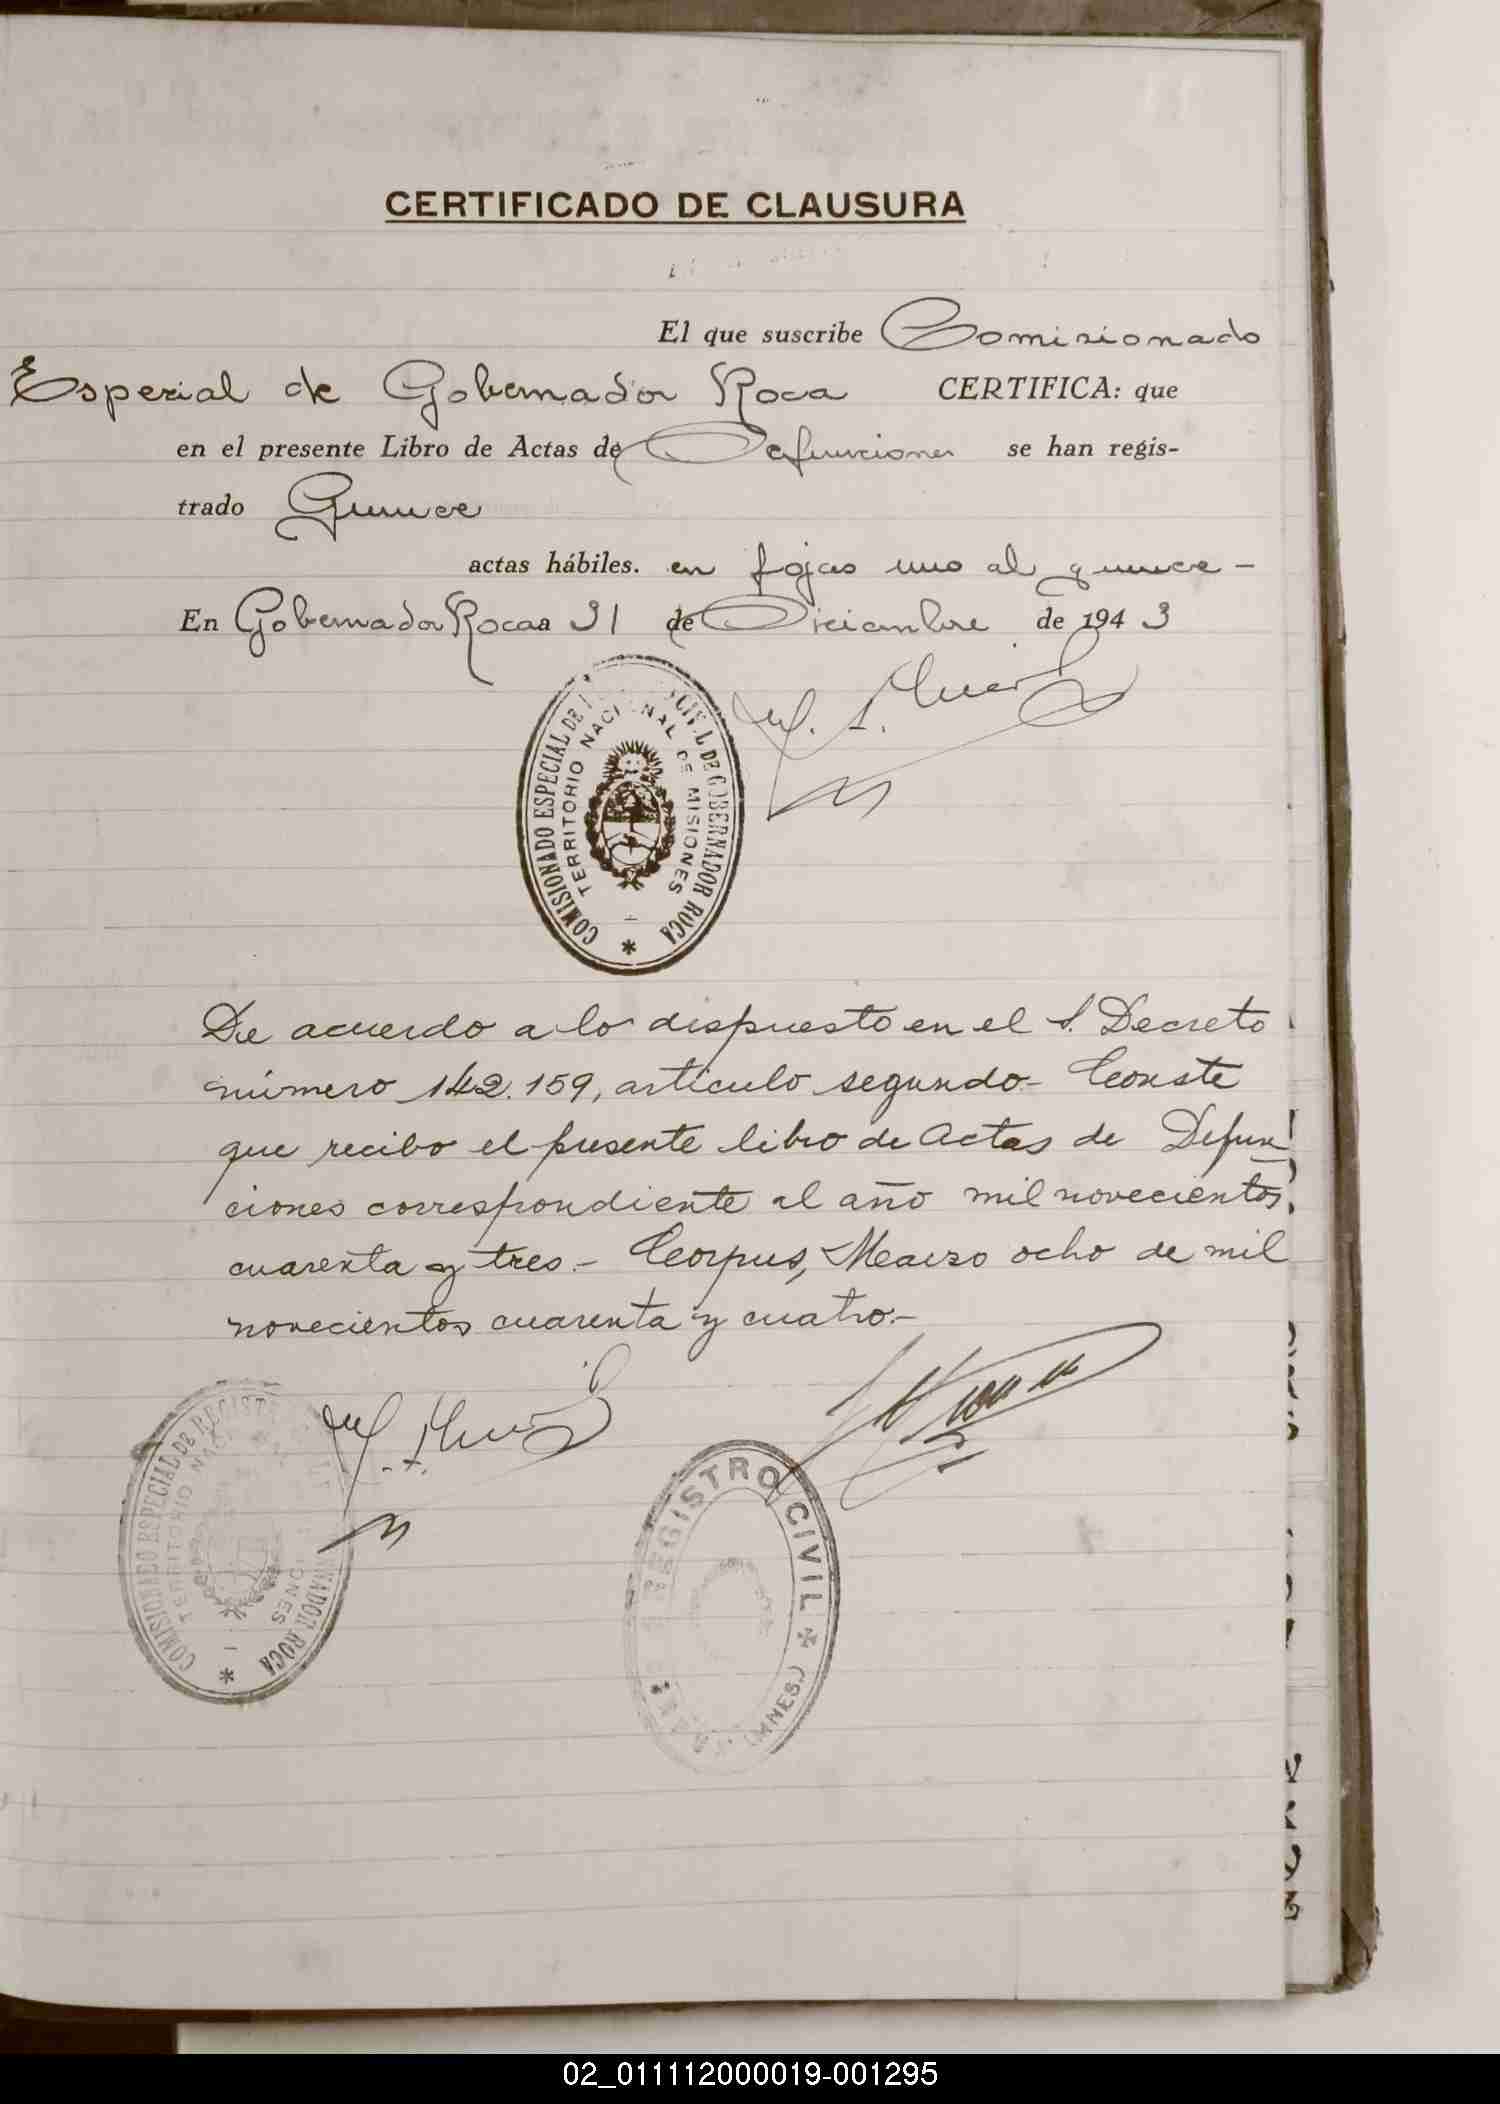 CERTIFICADO DE CLAUSURA
El que suscribe Comisionado
Especial de Gobernador Roca CERTIFICA: que
en el presente Libro de Actas de Defunciones se han regis-
trado Quince
actas hábiles. en fojas uno al quince -
En Gobernador Roca a 31 de Diciembre de 1943
COMISIONADO ESPECIAL DE GOBERNADOR ROCA
TERRITORIO NACIONAL DE MISIONES
De acuerdo a lo dispuesto en el S. Decreto
número 142.159, artículo segundo.- Conste
que recibo el presente libro de Actas de Defun
ciones correspondiente al año mil novecientos
cuarenta y tres.- Corpus, Marzo ocho de mil
novecientos cuarenta y cuatro.-
COMISIONADO ESPECIAL DE REGISTRO ROCA
TERRITORIO
REGISTRO CIVIL
(MNES.)
02_011112000019-001295